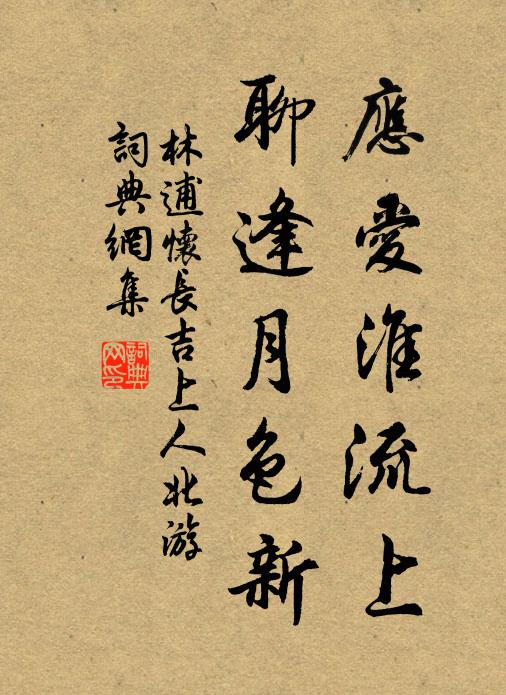 應愛淮流上
聊逢月色新
林逋懷長吉上人北游
詞典網集
詞典
网印